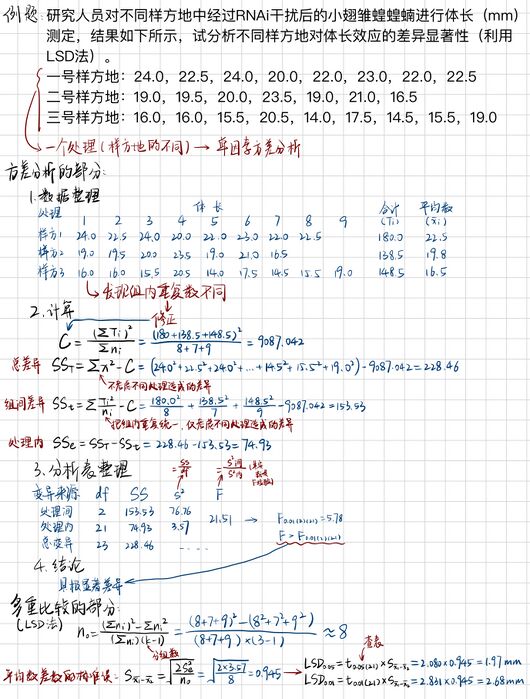 例题:研究人员对不同样方地中经过RNAi干扰后的小翅雏蝗蝗蝻进行体长（mm）
测定，结果如下所示，试分析不同样方地对体长效应的差异显著性（利用
LSD法）。
一号样方地：24.0，22.5，24.0，20.0，22.0，23.0，22.0，22.5
二号样方地：19.0，19.5，20.0，23.5，19.0，21.0，16.5
三号样方地：16.0，16.0，15.5，20.5，14.0，17.5，14.5，15.5，19.0
一个处理(样方地的不同) → 单因素方差分析
方差分析的部分:
1.数据整理
处理 体长 合计 平均数
1 2 3 4 5 6 7 8 9 (Ti) (x̄i)
样方1 24.0 22.5 24.0 20.0 22.0 23.0 22.0 22.5 180.0 22.5
样方2 19.0 19.5 20.0 23.5 19.0 21.0 16.5 138.5 19.8
样方3 16.0 16.0 15.5 20.5 14.0 17.5 14.5 15.5 19.0 148.5 16.5
发现组内重复数不同
2.计算 修正
C = (ΣTi)²/Σni = (180+138.5+148.5)²/8+7+9 = 9087.042
总差异 SST = Σx² - C = (24.0²+22.5²+24.0²+...+14.5²+15.5²+19.0²) - 9087.042 = 228.46
不考虑不同处理造成的差异
组间差异 SSt = ΣTi²/ni - C = 180.0²/8 + 138.5²/7 + 148.5²/9 - 9087.042 = 153.53
把组内重复统一，仅考虑不同处理造成的差异
处理内 SSe = SST - SSt = 228.46 - 153.53 = 74.93
3.分析表整理 = SS/df = S²间/S²内
变异来源 df SS S² F
处理间 2 153.53 76.76
21.51 → F0.01(2)(21) = 5.78
处理内 21 74.93 3.57
F > F0.01(2)(21)
总变异 23 228.46 ....
4.结论
具极显著差异
多重比较的部分:
(LSD法) n0 = (Σni)² - Σni²/(Σni)(k-1) = (8+7+9)² - (8²+7²+9²)/(8+7+9)×(3-1) ≈ 8
分组数 查表
平均数差数的标准误: Sx̄1-x̄2 = √2Se²/n0 = √2×3.57/8 = 0.945 → LSD0.05 = t0.05(21) × Sx̄1-x̄2 = 2.080×0.945 = 1.97mm
LSD0.01 = t0.01(21) × Sx̄1-x̄2 = 2.831×0.945 = 2.68mm